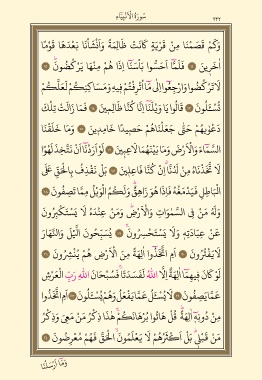 سُورَةُ الْأَنْبِيَاءِ
٣٢٢
وَكَمْ قَصَمْنَا مِنْ قَرْيَةٍ كَانَتْ ظَالِمَةً وَأَنْشَأْنَا بَعْدَهَا قَوْمًا
اٰخَرِينَ فَلَمَّٓا اَحَسُّوا بَأْسَنَٓا اِذَا هُمْ مِنْهَا يَرْكُضُونَ
لَا تَرْكُضُوا وَارْجِعُٓوا اِلٰى مَٓا اُتْرِفْتُمْ فِيهِ وَمَسَاكِنِكُمْ لَعَلَّكُمْ
تُسْـَٔلُونَ قَالُوا يَا وَيْلَنَٓا اِنَّا كُنَّا ظَالِمِينَ فَمَا زَالَتْ تِلْكَ
دَعْوٰيهُمْ حَتّٰى جَعَلْنَاهُمْ حَصِيدًا خَامِدِينَ وَمَا خَلَقْنَا
السَّمَٓاءَ وَالْاَرْضَ وَمَا بَيْنَهُمَا لَاعِبِينَ لَوْ اَرَدْنَٓا اَنْ نَتَّخِذَ لَهْوًا
لَاتَّخَذْنَاهُ مِنْ لَدُنَّٓا اِنْ كُنَّا فَاعِلِينَ بَلْ نَقْذِفُ بِالْحَقِّ عَلَى
الْبَاطِلِ فَيَدْمَغُهُ فَاِذَا هُوَ زَاهِقٌ وَلَكُمُ الْوَيْلُ مِمَّا تَصِفُونَ
وَلَهُ مَنْ فِي السَّمٰوَاتِ وَالْاَرْضِ وَمَنْ عِنْدَهُ لَا يَسْتَكْبِرُونَ
عَنْ عِبَادَتِهِ وَلَا يَسْتَحْسِرُونَ يُسَبِّحُونَ الَّيْلَ وَالنَّهَارَ
لَا يَفْتُرُونَ اَمِ اتَّخَذُٓوا اٰلِهَةً مِنَ الْاَرْضِ هُمْ يُنْشِرُونَ
لَوْ كَانَ فِيهِمَٓا اٰلِهَةٌ اِلَّا اللّٰهُ لَفَسَدَتَا فَسُبْحَانَ اللّٰهِ رَبِّ الْعَرْشِ
عَمَّا يَصِفُونَ لَا يُسْـَٔلُ عَمَّا يَفْعَلُ وَهُمْ يُسْـَٔلُونَ اَمِ اتَّخَذُوا
مِنْ دُونِهِٓ اٰلِهَةً قُلْ هَاتُوا بُرْهَانَكُمْ هٰذَا ذِكْرُ مَنْ مَعِيَ وَذِكْرُ
مَنْ قَبْلِي بَلْ اَكْثَرُهُمْ لَا يَعْلَمُونَ الْحَقَّ فَهُمْ مُعْرِضُونَ
وَمَٓا اَرْسَلْنَا